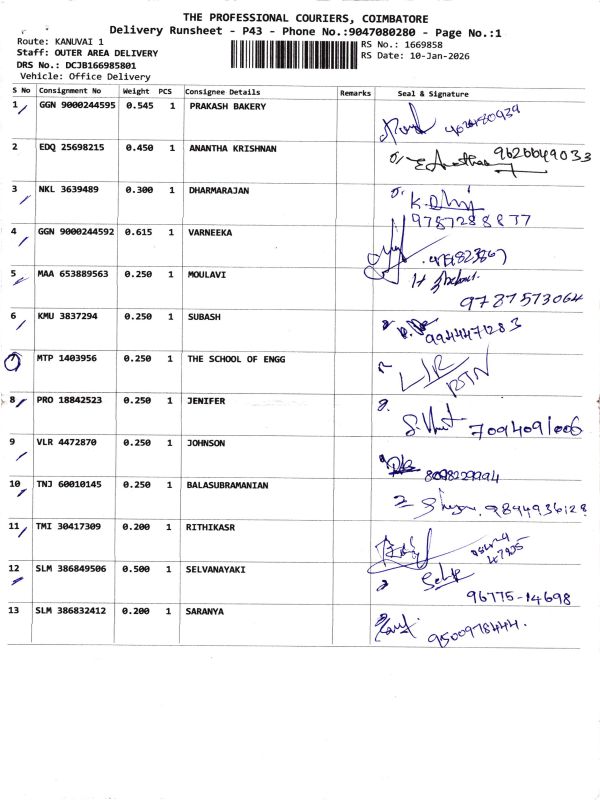 THE PROFESSIONAL COURIERS, COIMBATORE
Delivery Runsheet - P43 - Phone No.:9047080280 - Page No.:1
Route: KANUVAI 1
Staff: OUTER AREA DELIVERY
DRS No.: DCJB166985801
Vehicle: Office Delivery
RS No.: 1669858
RS Date: 10-Jan-2026
S No Consignment No Weight PCS Consignee Details Remarks Seal & Signature
1 GGN 9000244595 0.545 1 PRAKASH BAKERY
2 EDQ 25698215 0.450 1 ANANTHA KRISHNAN 9626649033
3 NKL 3639489 0.300 1 DHARMARAJAN
9787288837
4 GGN 9000244592 0.615 1 VARNEEKA
5 MAA 653889563 0.250 1 MOULAVI
9787573064
6 KMU 3837294 0.250 1 SUBASH
9944471283
7 MTP 1403956 0.250 1 THE SCHOOL OF ENGG
RTN
8 PRO 18842523 0.250 1 JENIFER
7094091006
9 VLR 4472870 0.250 1 JOHNSON
8098229994
10 TNJ 60010145 0.250 1 BALASUBRAMANIAN
9894936128
11 TMI 30417309 0.200 1 RITHIKASR
12 SLM 386849506 0.500 1 SELVANAYAKI
96775-14698
13 SLM 386832412 0.200 1 SARANYA
9500978444.